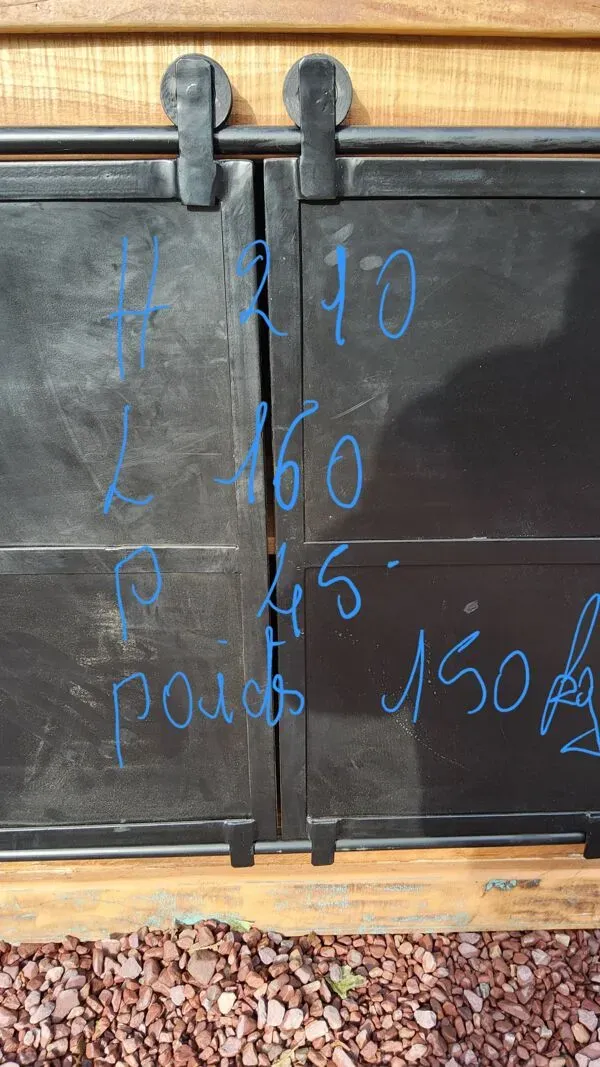 H 210
L 160
P 45
poids 150 kg